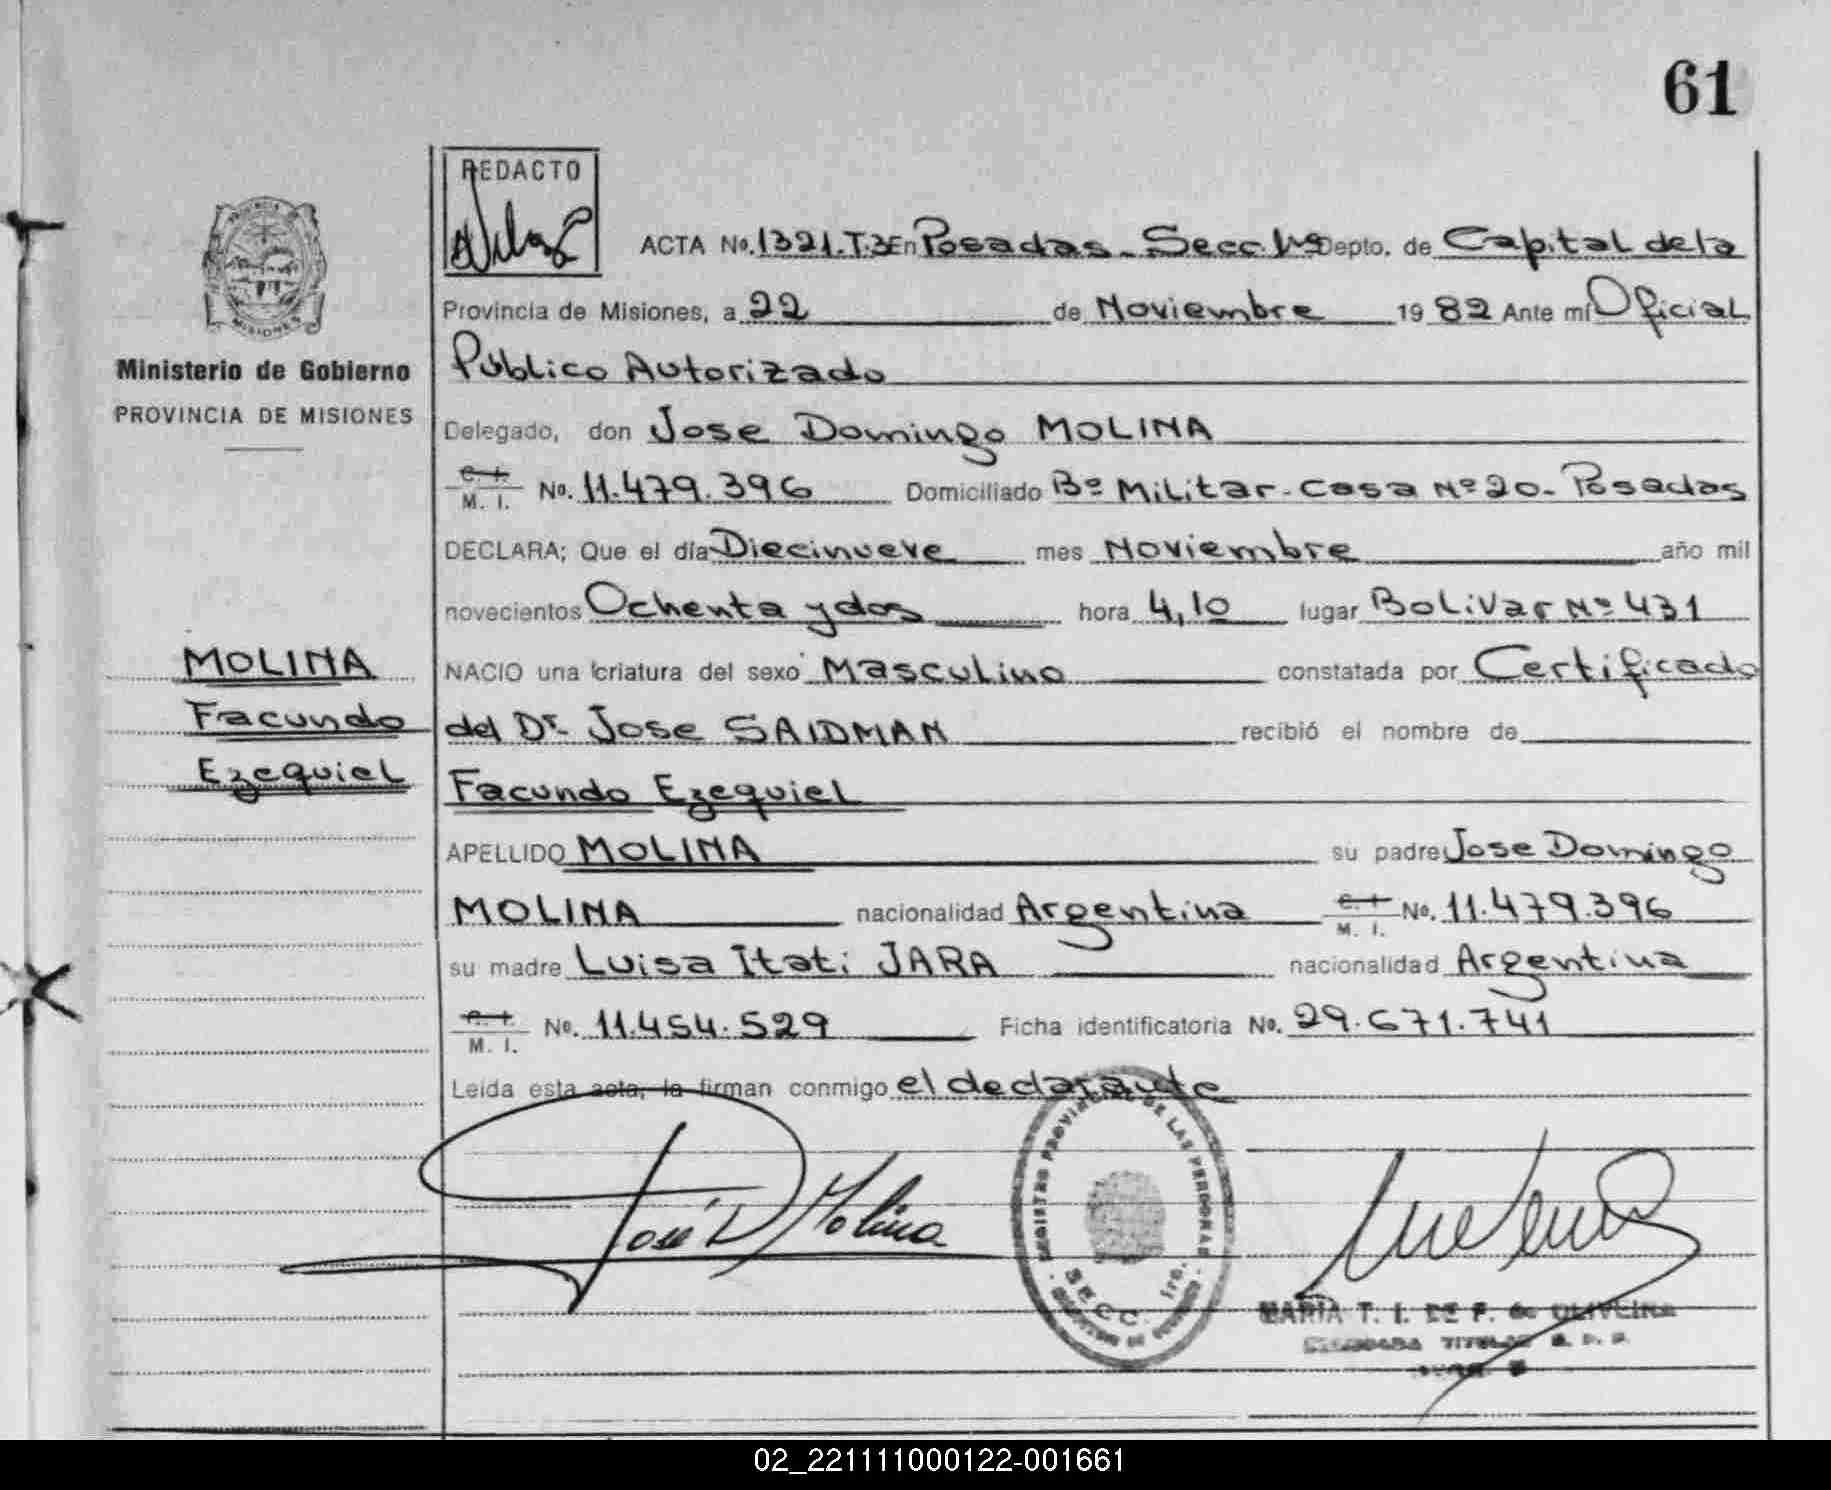 61
REDACTO
ACTA No. 1321.T.3 En Posadas - Secc 1ra Depto. de Capital de la
Provincia de Misiones, a 22 de Noviembre 19 82 Ante mí Oficial
Ministerio de Gobierno
PROVINCIA DE MISIONES
Público Autorizado
Delegado, don Jose Domingo MOLINA
M. I. No. 11.479.396 Domiciliado Bº Militar - Casa Nº 20 - Posadas
DECLARA; Que el día Diecinueve mes Noviembre año mil
novecientos Ochenta y dos hora 4,10 lugar Bolivar Nº 431
MOLINA
Facundo
Ezequiel
NACIO una criatura del sexo Masculino constatada por Certificado
del Dr Jose SAIDMAN recibió el nombre de
Facundo Ezequiel
APELLIDO MOLINA su padre Jose Domingo
MOLINA nacionalidad Argentina M. I. No. 11.479.396
su madre Luisa Itati JARA nacionalidad Argentina
M. I. No. 11.454.529 Ficha identificatoria No. 29.671.741
Leída esta acta, la firman conmigo el declarante
José D Molina
REGISTRO PROVINCIAL DE LAS PERSONAS
SECC. 1ra.
MARIA T. I. DE F. de OLIVEIRA
02_221111000122-001661